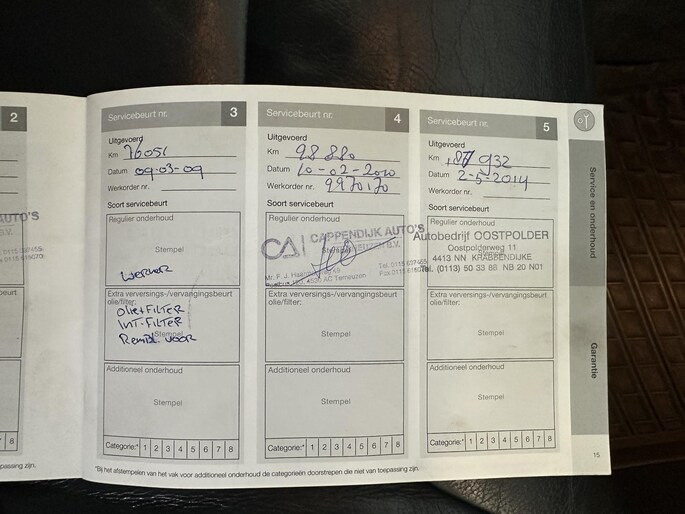 2
AUTO'S
B.V.
8
passing zijn.
Servicebeurt nr. 3
Uitgevoerd
Km 76051
Datum 09-03-09
Werkorder nr.
Soort servicebeurt
Regulier onderhoud
Stempel
Extra verversings-/vervangingsbeurt
olie/filter:
OLIE+FILTER
INT-FILTER
Stempel
REMBL. VOOR
Additioneel onderhoud
Stempel
Categorie:* 1 2 3 4 5 6 7 8
Servicebeurt nr. 4
Uitgevoerd
Km 98880
Datum 10-02-2010
Werkorder nr. 9970170
Soort servicebeurt
Regulier onderhoud
CA CAPPENDIJK AUTO'S
B.V.
Mr. F. J.
4536 AC Terneuzen
Extra verversings-/vervangingsbeurt
olie/filter:
Stempel
Additioneel onderhoud
Stempel
Categorie:* 1 2 3 4 5 6 7 8
Servicebeurt nr. 5
Uitgevoerd
Km 187 932
Datum 2-5-2014
Werkorder nr.
Soort servicebeurt
Regulier onderhoud
Autobedrijf OOSTPOLDER
Oostpolderweg 11
4413 NN KRABBENDIJKE
Tel. (0113) 50 33 88 NB 20 N01
Extra verversings-/vervangingsbeurt
olie/filter:
Stempel
Additioneel onderhoud
Stempel
Categorie:* 1 2 3 4 5 6 7 8
*Bij het afstempelen van het vak voor additioneel onderhoud de categorieën doorstrepen die niet van toepassing zijn.
Service en onderhoud
Garantie
15